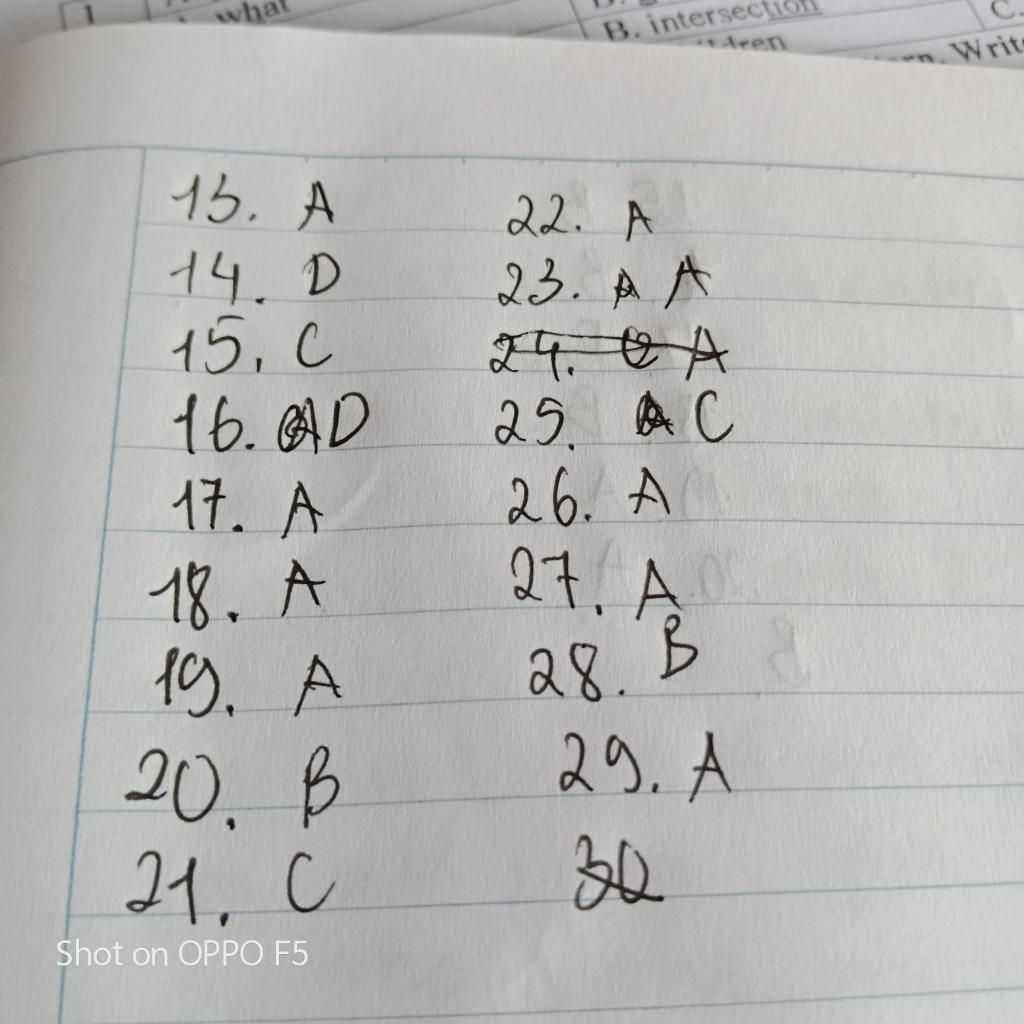 1.
what
B. intersection
C.
Write
13. A
14. D
15. C
16. D
17. A
18. A
19. A
20. B
21. C
22. A
23. A
24. A
25. C
26. A
27. A
28. B
29. A
30
Shot on OPPO F5